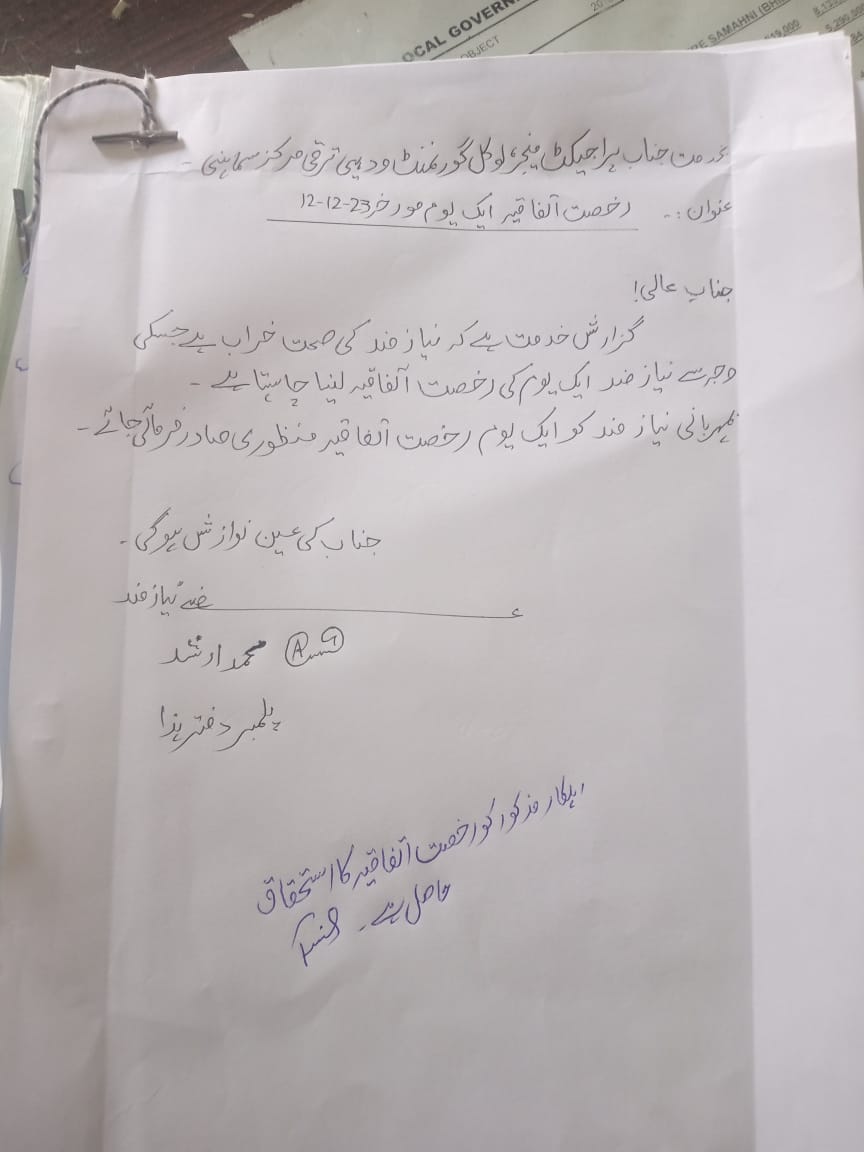 OCAL GOVERN
OBJECT
RE SAMAHNI (BHI
بخدمت جناب پراجیکٹ منیجر لوکل گورنمنٹ و دیہی ترقی مرکز سماہنی۔
عنوان:۔ رخصت اتفاقیہ ایک یوم مورخہ 23-12-12
جناب عالی!
گزارش خدمت ہے کہ نیاز مند کی صحت خراب ہے جسکی
وجہ سے نیاز مند ایک یوم کی رخصت اتفاقیہ لینا چاہتا ہے۔
بمہربانی نیاز مند کو ایک یوم رخصت اتفاقیہ منظوری صادر فرمائی جائے۔
جناب کی عین نوازش ہوگی۔
عرضے نیاز مند
محمد ارشد
پلمبر دفتر ہذا
اہلکار مذکور کو رخصت اتفاقیہ کا استحقاق
حاصل ہے۔